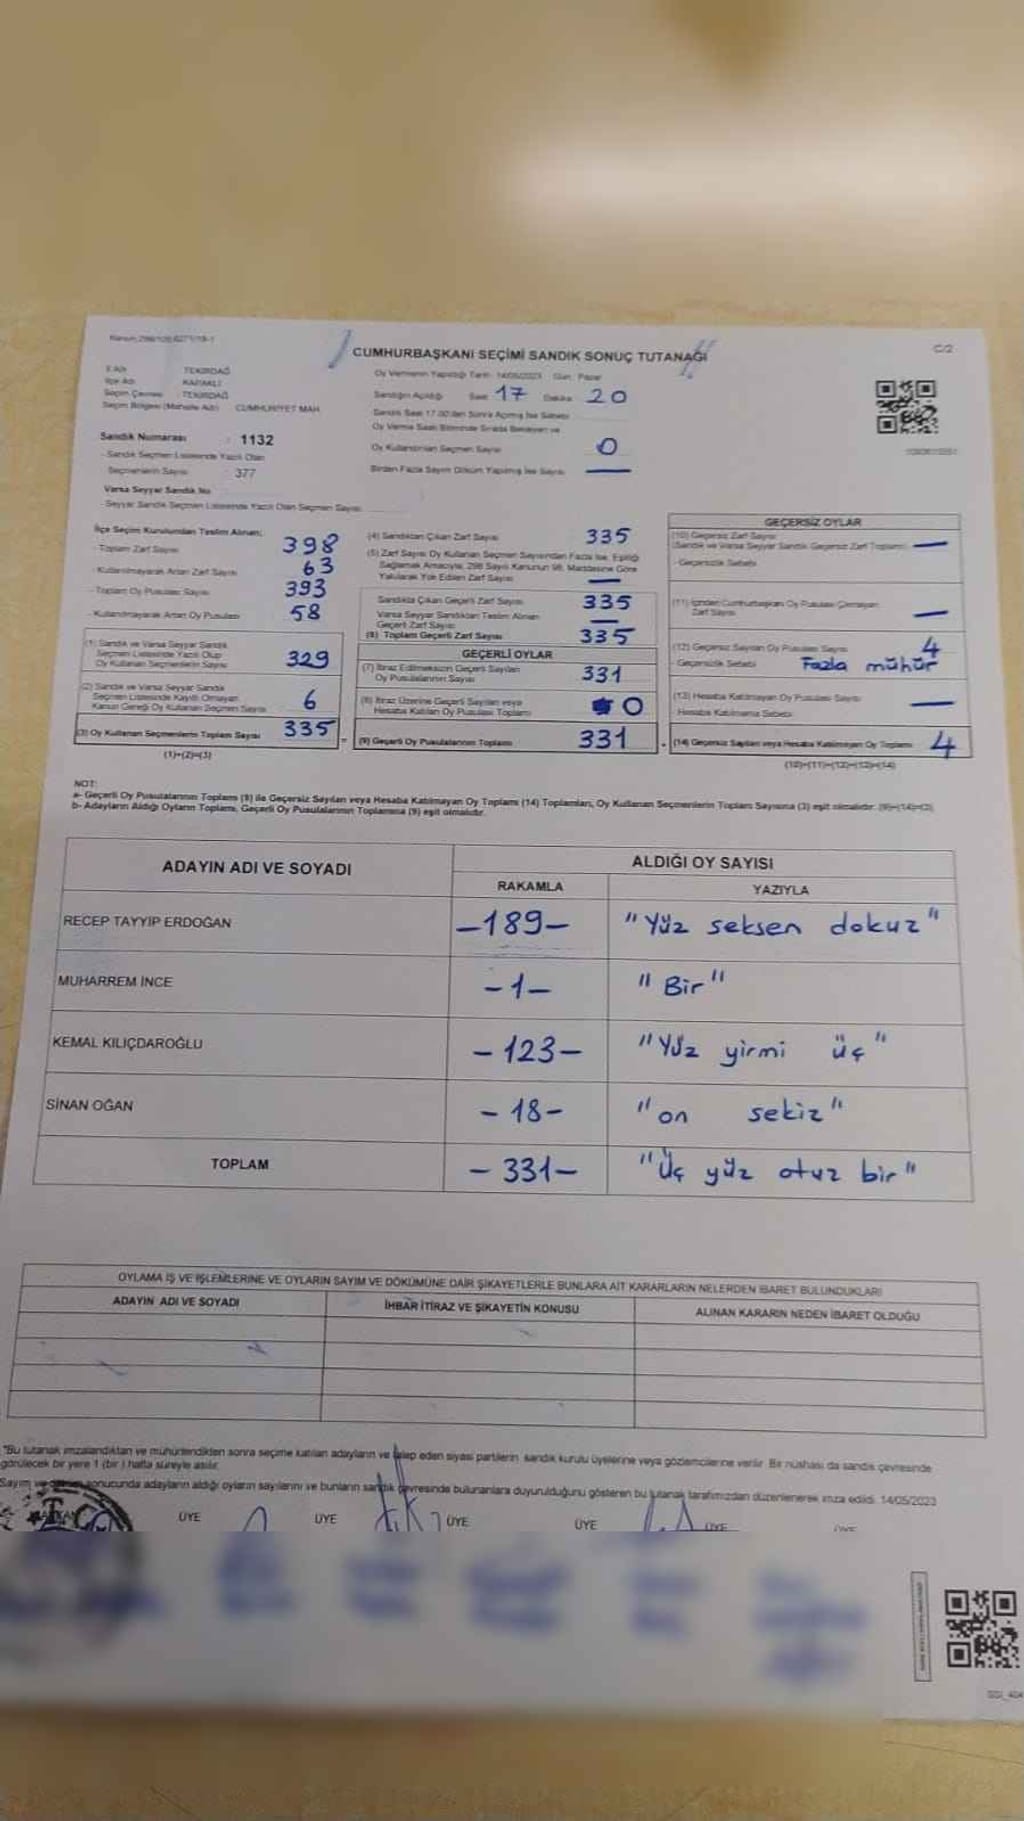 CUMHURBAŞKANI SEÇİMİ SANDIK SONUÇ TUTANAĞI
C/2
İli Adı TEKİRDAĞ
İlçe Adı KAPAKLI
Seçim Çevresi TEKİRDAĞ
Seçim Bölgesi (Mahalle Adı) CUMHURİYET MAH.
Oy Vermenin Yapıldığı Tarih 14/05/2023 Gün: Pazar
Sandığın Açıldığı Saat 17 Dakika 20
Sandık Saat 17.00'den Sonra Açılmış İse Sebebi
Oy Verme Saati Bitiminde Sırada Bekleyen ve
Oy Kullandırılan Seçmen Sayısı 0
Birden Fazla Sayım Döküm Yapılmış İse Sayısı —
Sandık Numarası : 1132
- Sandık Seçmen Listesinde Yazılı Olan
Seçmenlerin Sayısı : 377
Varsa Seyyar Sandık No
- Seyyar Sandık Seçmen Listesinde Yazılı Olan Seçmen Sayısı
İlçe Seçim Kurulundan Teslim Alınan;
- Toplam Zarf Sayısı 398
- Kullanılmayarak Artan Zarf Sayısı 63
- Toplam Oy Pusulası Sayısı 393
- Kullanılmayarak Artan Oy Pusulası 58
(1) Sandık ve Varsa Seyyar Sandık
Seçmen Listesinde Yazılı Olup
Oy Kullanan Seçmenlerin Sayısı 329
(2) Sandık ve Varsa Seyyar Sandık
Seçmen Listesinde Kayıtlı Olmayan
Kanun Gereği Oy Kullanan Seçmen Sayısı 6
(3) Oy Kullanan Seçmenlerin Toplam Sayısı 335
(1)+(2)=(3)
(4) Sandıktan Çıkan Zarf Sayısı 335
(5) Zarf Sayısı Oy Kullanan Seçmen Sayısından Fazla İse, Eşitliği
Sağlamak Amacıyla, 298 Sayılı Kanunun 98. Maddesine Göre
Yakılarak Yok Edilen Zarf Sayısı —
Sandıkta Çıkan Geçerli Zarf Sayısı 335
Varsa Seyyar Sandıktan Teslim Alınan
Geçerli Zarf Sayısı —
(6) Toplam Geçerli Zarf Sayısı 335
GEÇERLİ OYLAR
(7) İtiraz Edilmeksizin Geçerli Sayılan
Oy Pusulalarının Sayısı 331
(8) İtiraz Üzerine Geçerli Sayılan veya
Hesaba Katılan Oy Pusulası Toplamı 0
(9) Geçerli Oy Pusulalarının Toplamı 331
GEÇERSİZ OYLAR
(10) Geçersiz Zarf Sayısı
(Sandık ve Varsa Seyyar Sandık Geçersiz Zarf Toplamı) —
- Geçersizlik Sebebi
(11) İçinden Cumhurbaşkanı Oy Pusulası Çıkmayan
Zarf Sayısı —
(12) Geçersiz Sayılan Oy Pusulası Sayısı 4
- Geçersizlik Sebebi Fazla mühür
(13) Hesaba Katılmayan Oy Pusulası Sayısı —
Hesaba Katılmama Sebebi
(14) Geçersiz Sayılan veya Hesaba Katılmayan Oy Toplamı 4
(10)+(11)+(12)+(13)=(14)
NOT:
a- Geçerli Oy Pusulalarının Toplamı (9) ile Geçersiz Sayılan veya Hesaba Katılmayan Oy Toplamı (14) Toplamları, Oy Kullanan Seçmenlerin Toplam Sayısına (3) eşit olmalıdır. (9)+(14)=(3)
b- Adayların Aldığı Oyların Toplamı, Geçerli Oy Pusulalarının Toplamına (9) eşit olmalıdır.
ADAYIN ADI VE SOYADI
ALDIĞI OY SAYISI
RAKAMLA YAZIYLA
RECEP TAYYİP ERDOĞAN -189- "Yüz seksen dokuz"
MUHARREM İNCE -1- "Bir"
KEMAL KILIÇDAROĞLU -123- "Yüz yirmi üç"
SİNAN OĞAN -18- "on sekiz"
TOPLAM -331- "Üç yüz otuz bir"
OYLAMA İŞ VE İŞLEMLERİNE VE OYLARIN SAYIM VE DÖKÜMÜNE DAİR ŞİKAYETLERLE BUNLARA AİT KARARLARIN NELERDEN İBARET BULUNDUKLARI
ADAYIN ADI VE SOYADI İHBAR İTİRAZ VE ŞİKAYETİN KONUSU ALINAN KARARIN NEDEN İBARET OLDUĞU
"Bu tutanak imzalandıktan ve mühürlendikten sonra seçime katılan adayların ve talep eden siyasi partilerin sandık kurulu üyelerine veya gözlemcilerine verilir. Bir nüshası da sandık çevresinde
görülecek bir yere 1 (bir) hafta süreyle asılır.
Sayım ve döküm sonucunda adayların aldığı oyların sayılarını ve bunların sandık çevresinde bulunanlara duyurulduğunu gösteren bu tutanak tarafımızdan düzenlenerek imza edildi. 14/05/2023
ÜYE ÜYE ÜYE ÜYE ÜYE ÜYE